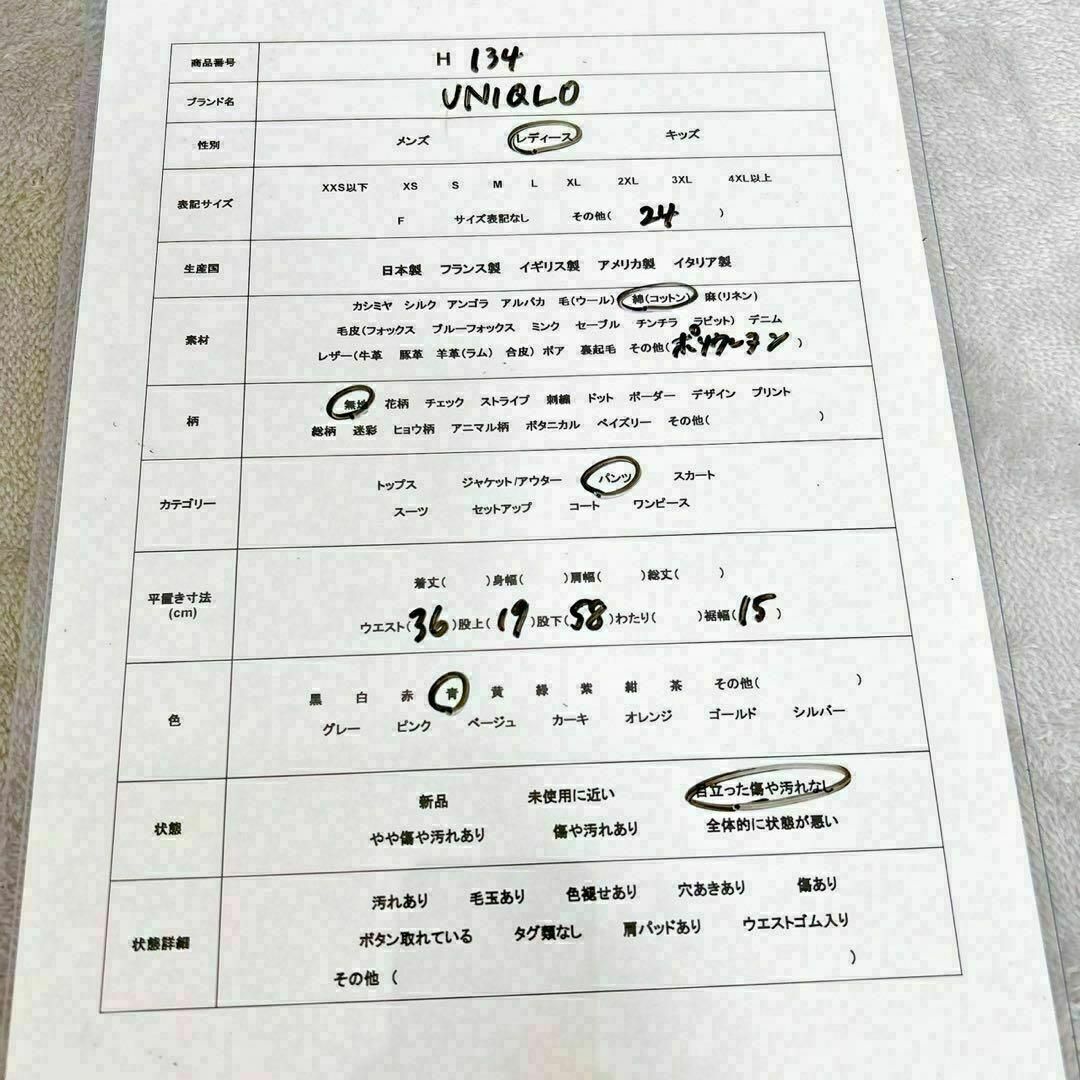 商品番号 H 134
ブランド名 UNIQLO
性別 メンズ レディース キッズ
表記サイズ XXS以下 XS S M L XL 2XL 3XL 4XL以上
F サイズ表記なし その他( 24 )
生産国 日本製 フランス製 イギリス製 アメリカ製 イタリア製
素材 カシミヤ シルク アンゴラ アルパカ 毛(ウール) 綿(コットン) 麻(リネン)
毛皮(フォックス ブルーフォックス ミンク セーブル チンチラ ラビット) デニム
レザー(牛革 豚革 羊革(ラム) 合皮) ボア 裏起毛 その他( ポリウレタン )
柄 無地 花柄 チェック ストライプ 刺繍 ドット ボーダー デザイン プリント
総柄 迷彩 ヒョウ柄 アニマル柄 ボタニカル ペイズリー その他( )
カテゴリー トップス ジャケット/アウター パンツ スカート
スーツ セットアップ コート ワンピース
平置き寸法
(cm)
着丈( )身幅( )肩幅( )総丈( )
ウエスト( 36 )股上( 19 )股下( 58 )わたり( )裾幅( 15 )
色 黒 白 赤 青 黄 緑 紫 紺 茶 その他( )
グレー ピンク ベージュ カーキ オレンジ ゴールド シルバー
状態 新品 未使用に近い 目立った傷や汚れなし
やや傷や汚れあり 傷や汚れあり 全体的に状態が悪い
状態詳細 汚れあり 毛玉あり 色褪せあり 穴あきあり 傷あり
ボタン取れている タグ類なし 肩パッドあり ウエストゴム入り
その他 ( )